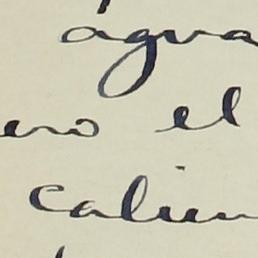 agua
ero el
calien